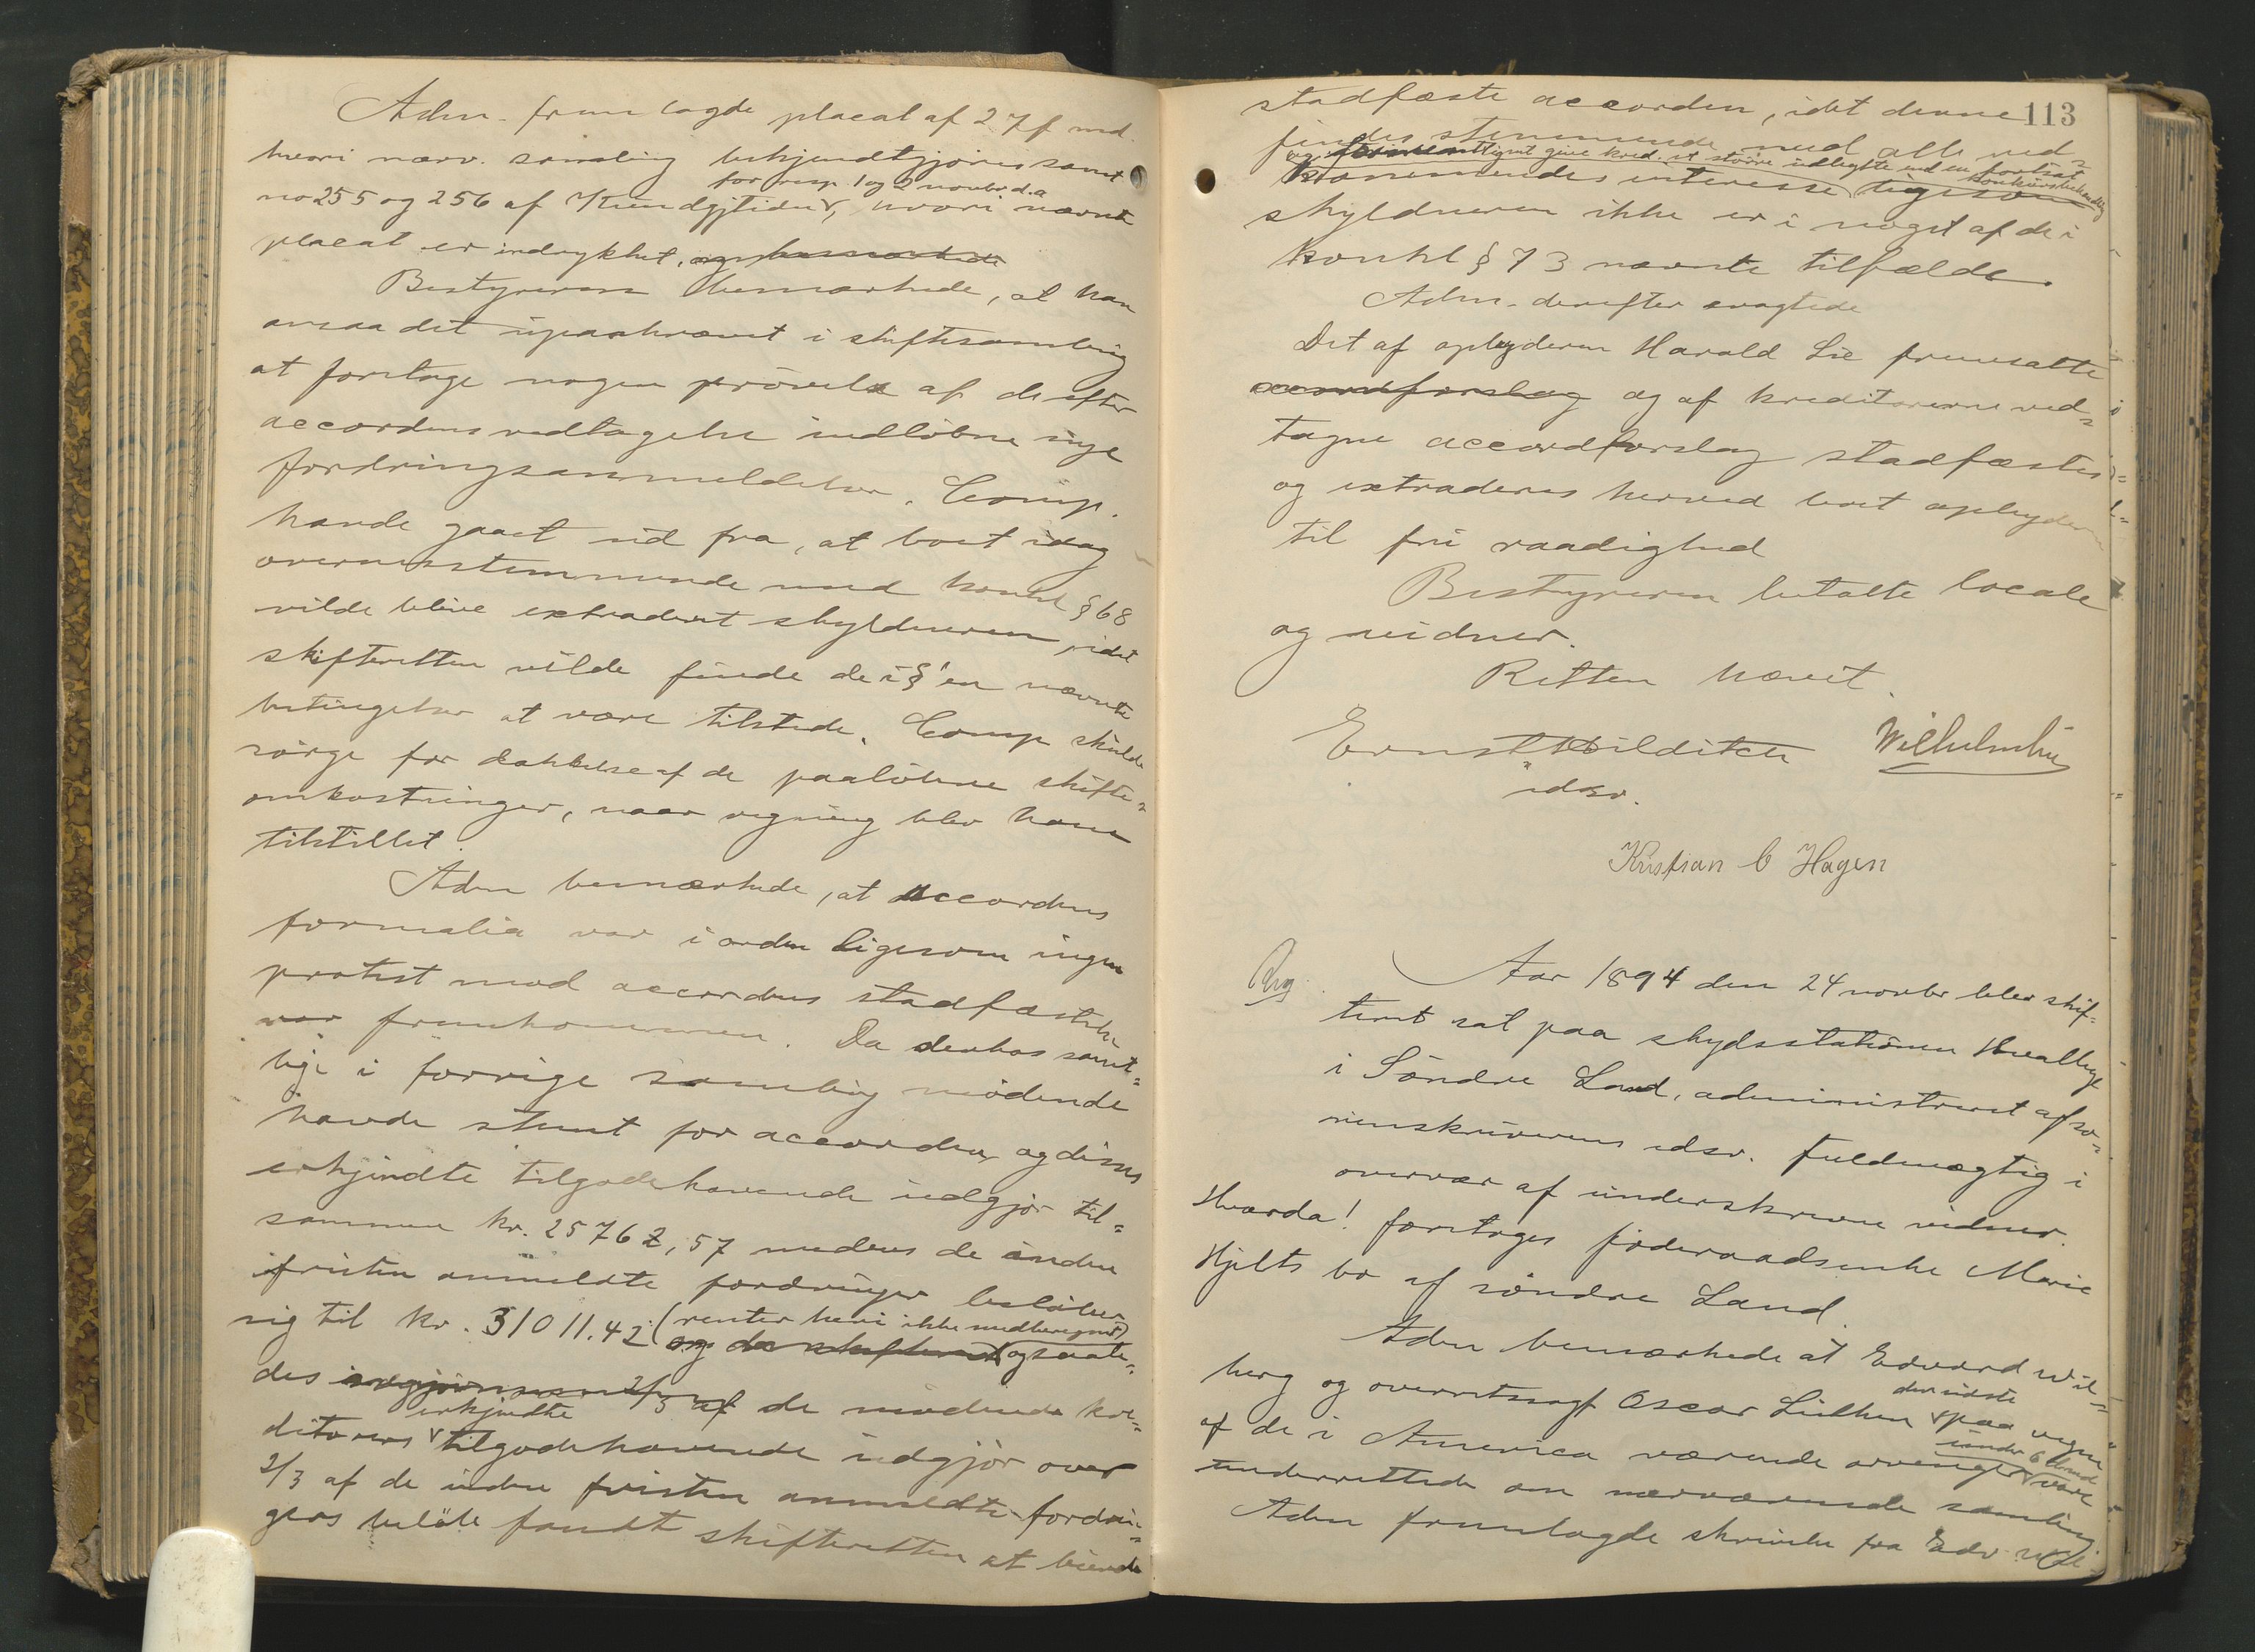 Adm. fremlagde placat af 27 f md
hvori nærv. samling bekjendtgjøres samt
for resp. 1 og 2 novbr d.a
no 255 og 256 af Kundgjtidn, hvori nævnte
placat er indrykket. og bemærkede
Bestyreren bemærkede, at han
ansaa det upaakrævet i skiftesamling
at foretage nogen prövelse af de efter
accordens vedtagelse indløbne nye
fordringsanmeldelser. Comp.
havde gaaet ud fra, at boet idag
overensstemmende med konkl § 68
vilde blive extraderet skyldneren, idet
skifteretten vilde finde de i §'en nævnte
betingelser at være tilstede. Comp skulde
sörge for dækkelse af de paalöbne skifte-
omkostninger, naar regning blev ham
tilstillet.
Adm bemærkede, at accordens
formalia var i orden ligesom ingen
protest mod accordens stadfæstelse
var fremkommen. Da derhos samt-
lige i forrige samling mödende
havde stemt for accorden og disses
erkjendte tilgodehavende udgjör til-
sammen kr. 25762,57 medens de inden
fristen anmeldte fordringer belöber
sig til kr. 31011.42 (renter heri ikke medberegnet)
og da skifteret ogsaale-
des 2/3 af de mödende kre-
erkjendte
ditorers tilgodehavende udgjör over
2/3 af de inden fristen anmeldte fordrin-
gers belöb fandt skifteretten at burde
113
stadfæste accorden, idet denne
findes stemmende med alle ved-
og give kred. et större udbytte end en fortsat
konkursbehandling
kommendes interesse ligesom
skyldneren ikke er i noget af de i
konkl § 73 nævnte tilfælde.
Adm. derefter eragtede
Det af opbyderen Harald Lie fremsatte
accordforslag og af kreditorerne ved-
tagne accordforslag stadfæstes
og extraderes herved boet opbyderen
til fri raadighed
Bestyreren betalte locale
og vidner.
Retten hævet.
Ernst Hilditch
edsv.
Kristian C Hagen
Aar 1894 den 24 novbr blev skif-
teret sat paa skydsstationen
i Söndre Land, administreret af so-
renskriverens edsv. fuldmægtig i
overvær af underskrevne vidner.
Hvorda! foretoges föderaadsenke Marie
Hjelts bo af söndre Land.
Adm bemærkede at Edvard Wil-
den sidste
berg og overretssagf Oscar Lütken paa vegne
under 6 dennes
af de i America værende arvinger vare
underrettede om nærværende samling
Adm fremlagde skrivelse fra Edv. Wil-